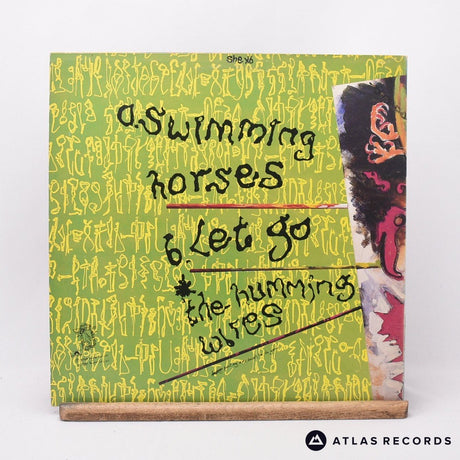 a. swimming
horses
b. Let go
* the humming
wires
ATLAS RECORDS